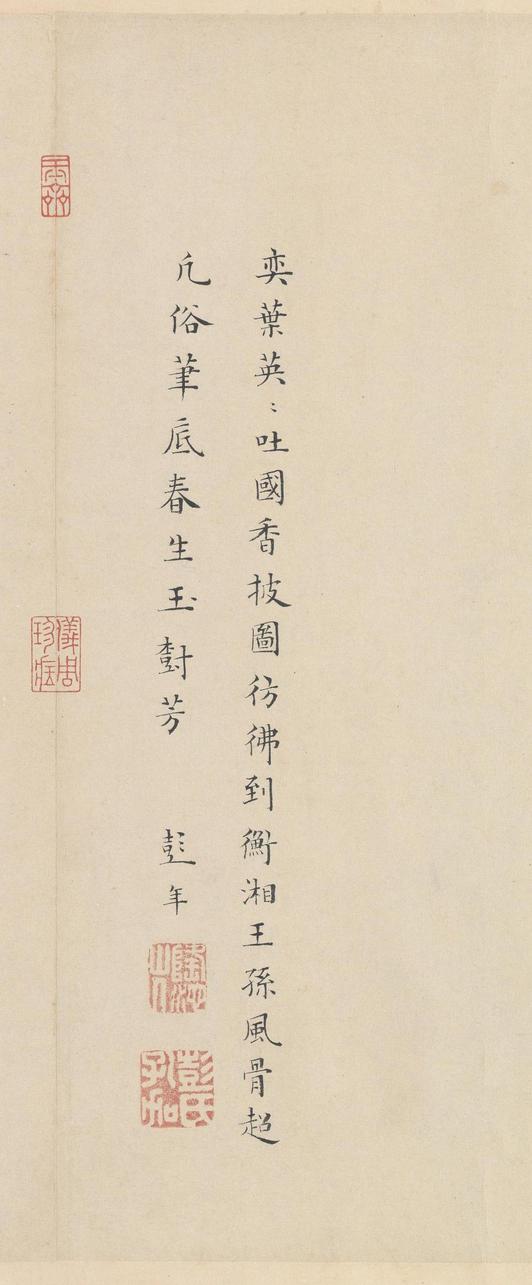 奕葉英〻吐國香披圖彷彿到衡湘王孫風骨超
凢俗筆底春生玉樹芳
彭年
彭氏孔加